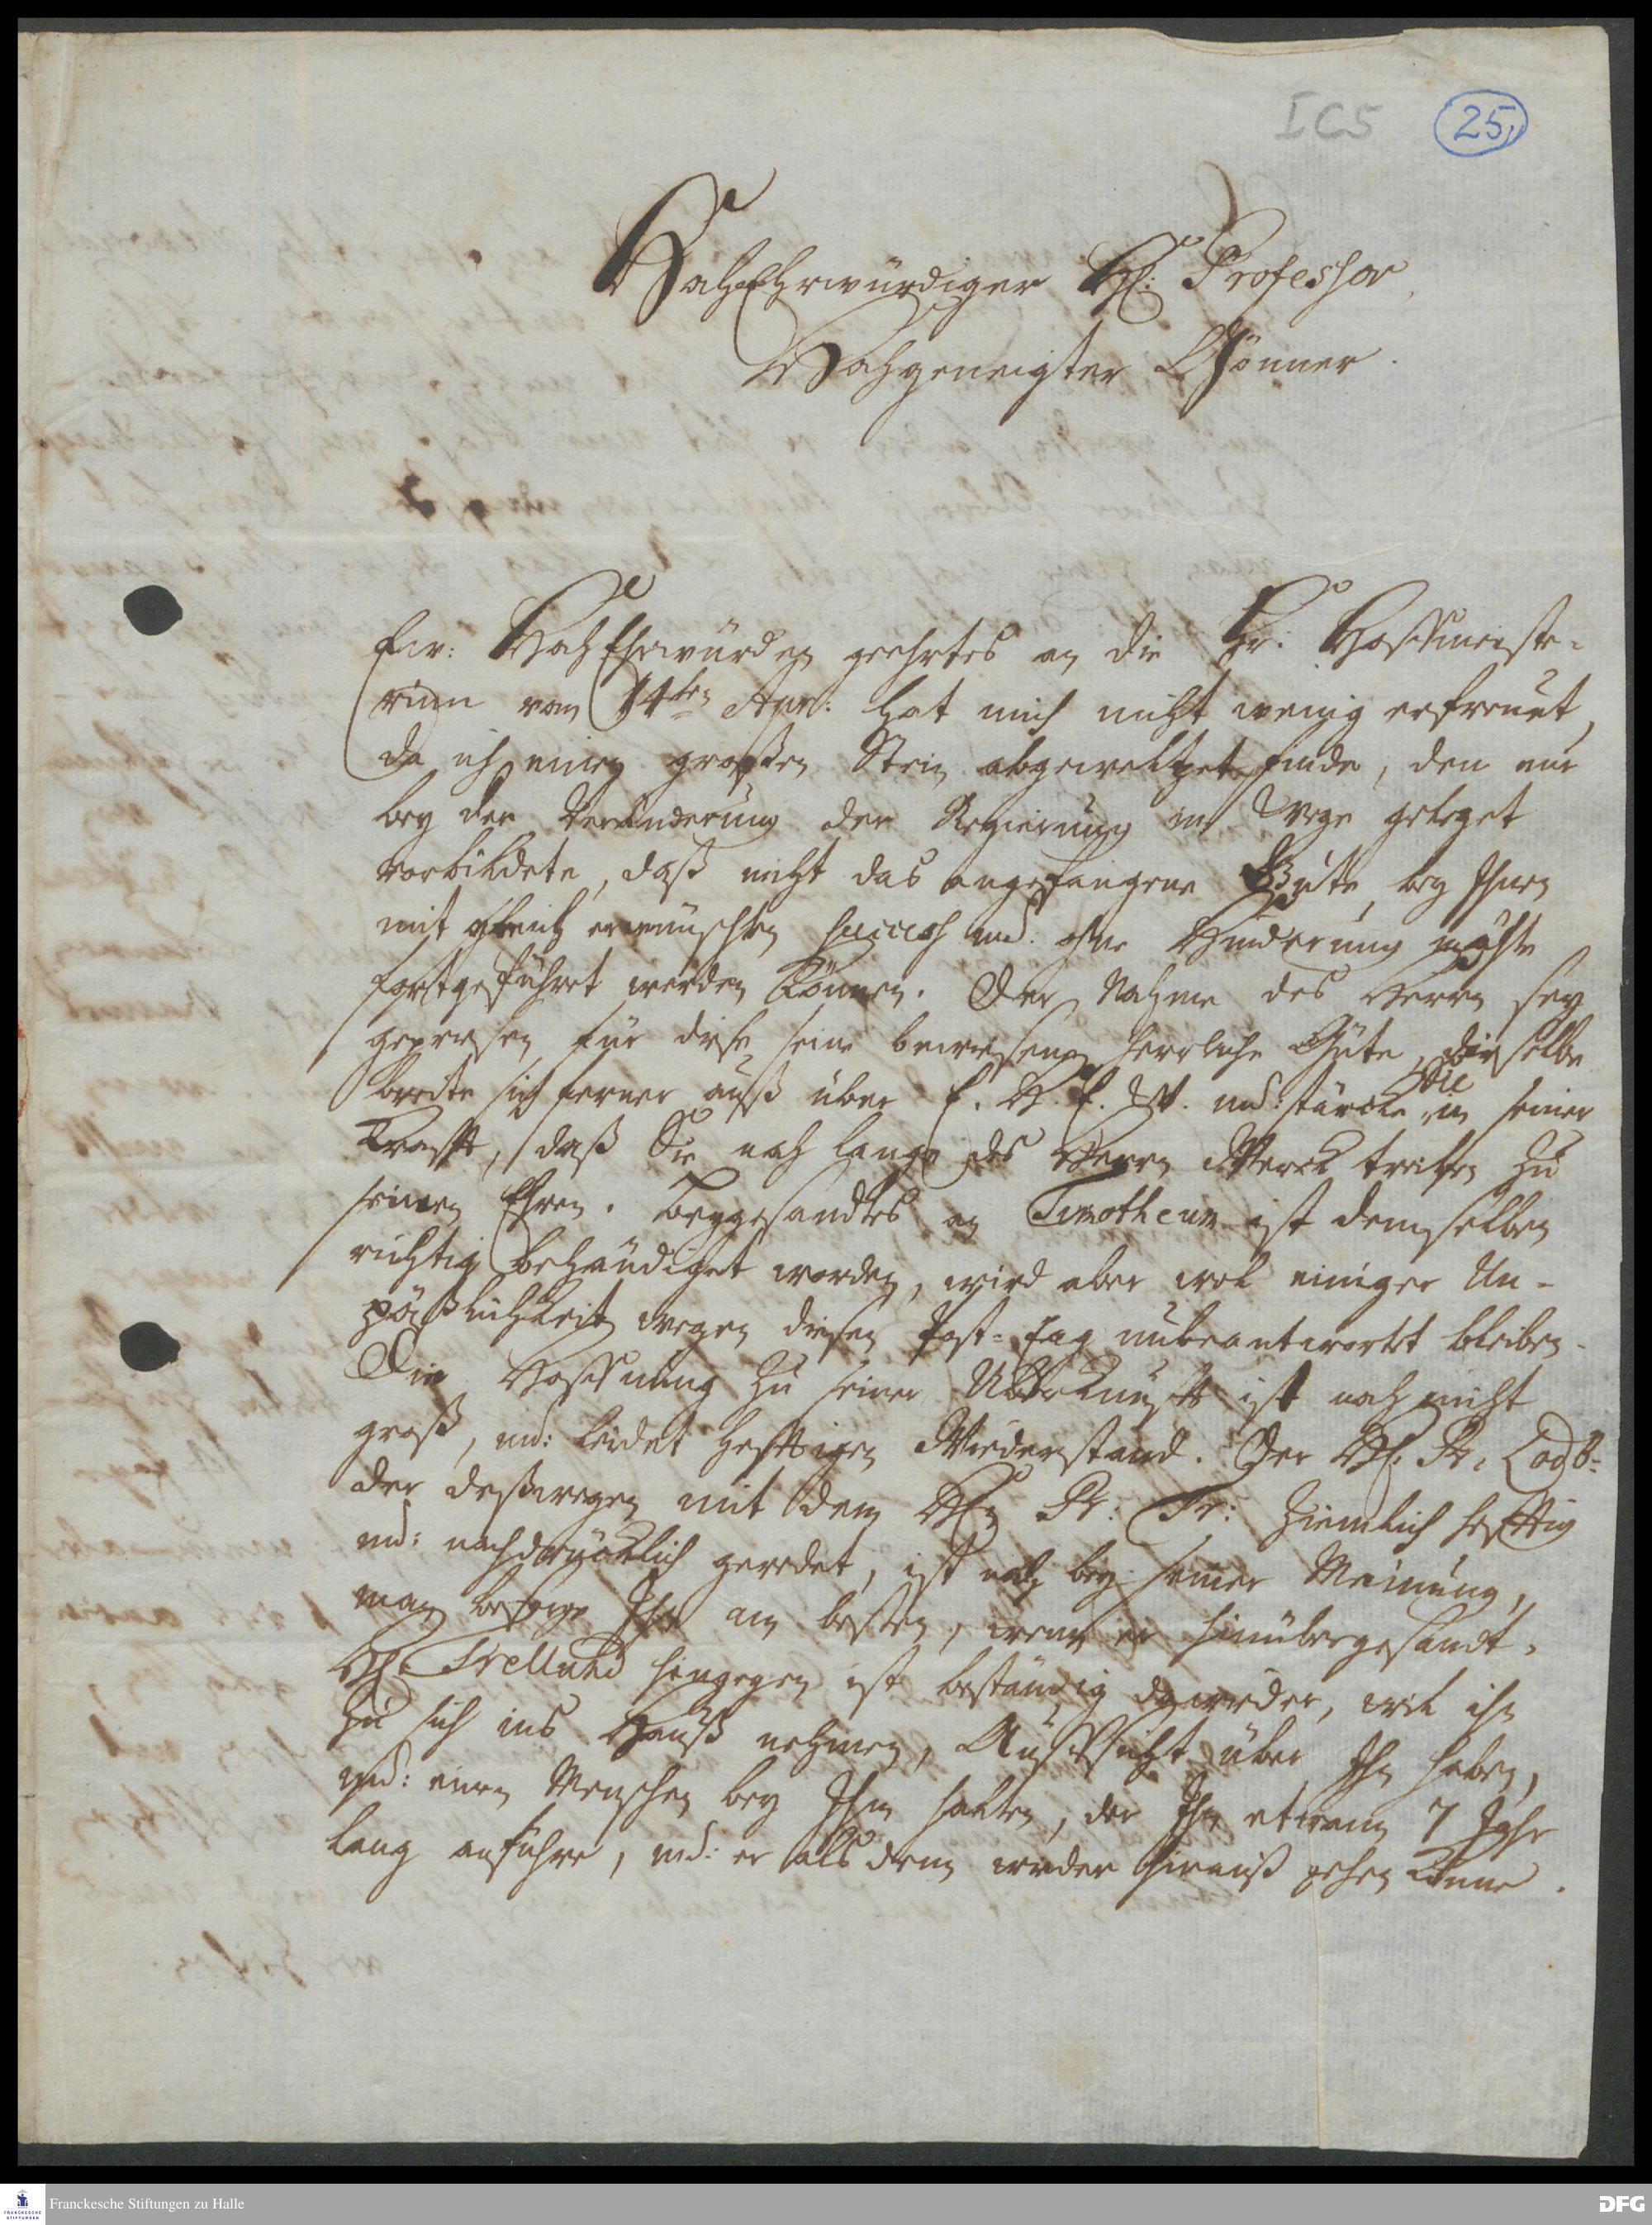 IC5 25,
HochEhrwürdiger H: Professor,
Hochgeneigter Gönner.
Ew: HochEhrwürden geehrtes an die Fr: Hoffmeiste-
rinn vom 14ten Apr: hat mich nicht wenig erfreuet,
da ich einen großen Stein abgeweltzet finde, den mir
bey der Veränderung der Regierung im Wege geleget
vorbildete, daß nicht das angefangene Gute, bey Ihnen
mit gleich erwünschten success und: ohne Hinderung möchte
fortgeführet werden können. Der Nahme des Herrn sey
gepriesen für diese seine bewiesene herrliche Güte, dieselbe
breite sich ferner auß über E. H. E. W. und: stärcke Sie in seiner
Krafft, daß Sie noch lange des Herrn Werck treiben zu
seinen Ehren. Beygesandtes an Timotheum ist demselben
richtig behändiget worden, wird aber wol einiger Un-
päßlichkeit wegen diesen Post-Tag unbeantwortet bleiben.
Die Hoffnung zu seiner Überkunfft ist noch nicht
groß, und: leidet hefftigen Wiederstand. Der H. Pr. Lodb-
der deßwegen mit dem Hn Pr: Fr: ziemlich hefftig
und: nachdrücklich geredet, ist noch bey seiner Meinung,
man besorge Ihn am besten, wenn er hinübergesandt.
H. Trellund hingegen ist beständig dawieder, will ihn
zu sich ins Hauß nehmen, Auffsicht über Ihn haben,
und: einen Menschen bey Ihm halten, der Ihn etwann 7 Jahr
lang anführe, und: er alsdenn wieder hinauß gehen könne.
Franckesche Stiftungen zu Halle
DFG